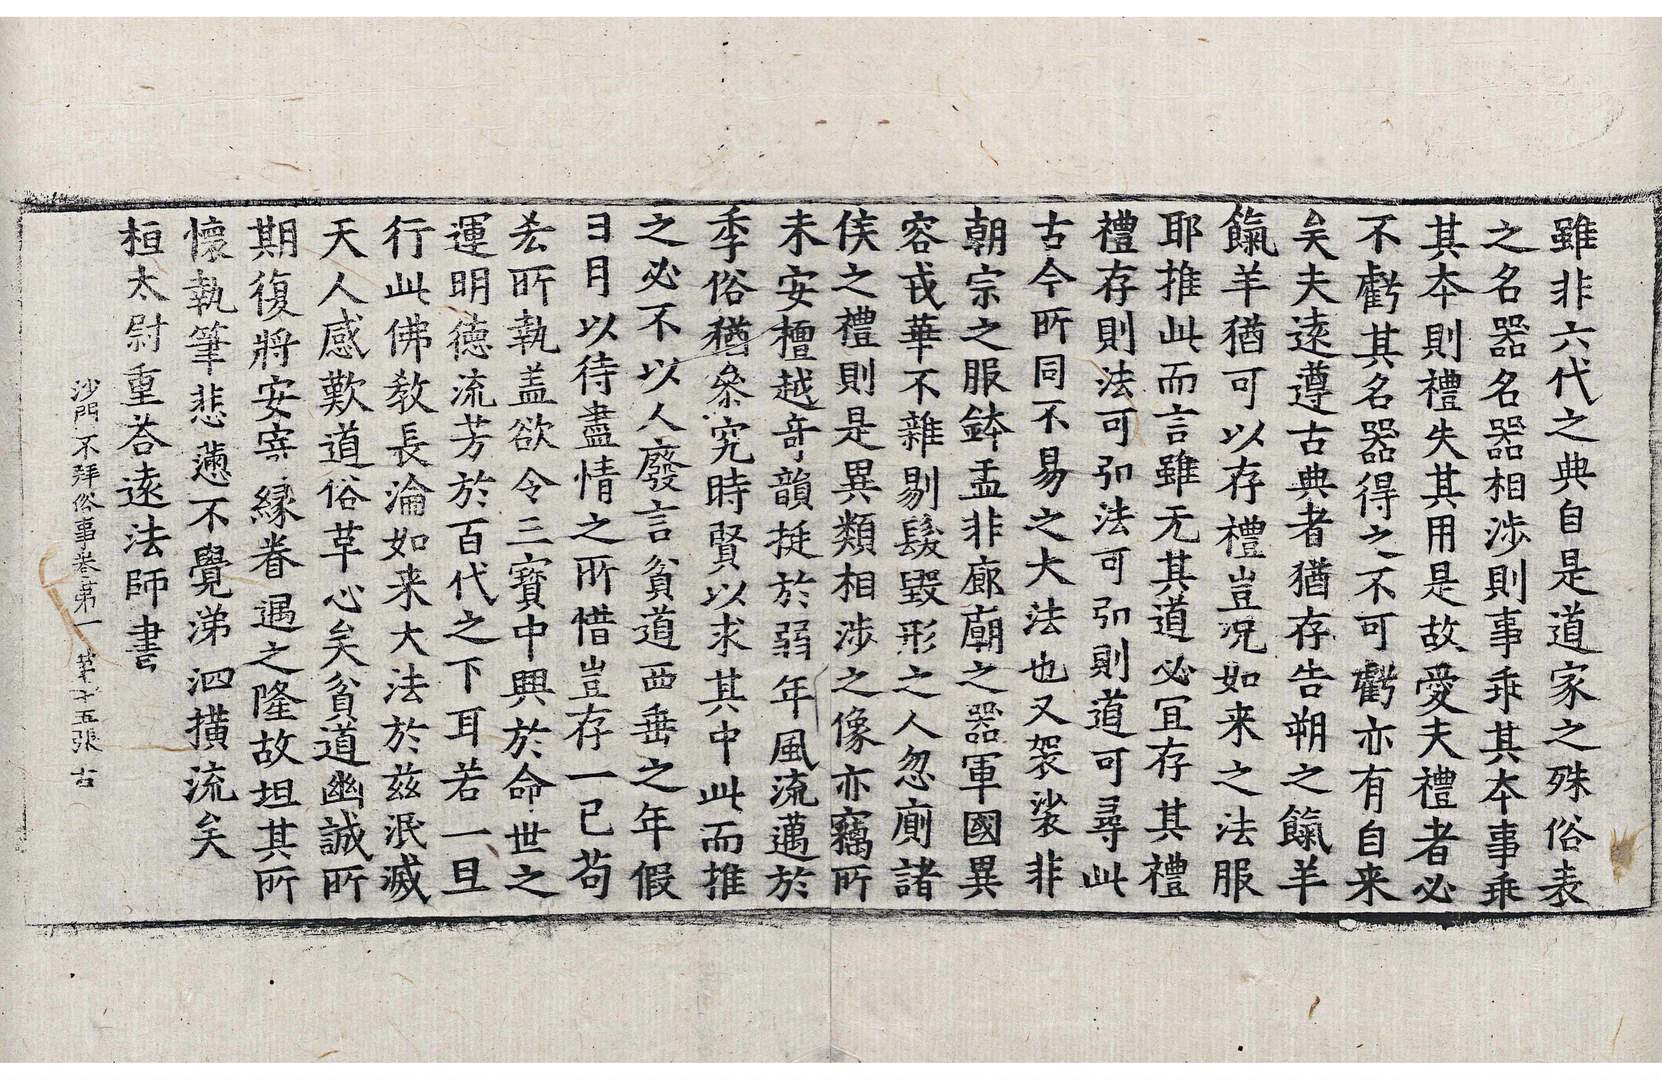 雖非六代之典自是道家之殊俗表
之名器名器相涉則事乖其本事乖
其本則禮失其用是故愛夫禮者必
不虧其名器得之不可虧亦有自来
矣夫遠遵古典者猶存告朔之餼羊
餼羊猶可以存禮豈況如来之法服
耶推此而言雖无其道必宜存其禮
禮存則法可弘法可弘則道可尋此
古今所同不易之大法也又袈裟非
朝宗之服鉢盂非廊廟之器軍國異
容戎華不雜剔髮毀形之人忽廁諸
侯之禮則是異類相涉之像亦竊所
未安檀越奇韻挺於弱年風流邁於
季俗猶叅究時賢以求其中此而推
之必不以人廢言貧道西垂之年假
日月以待盡情之所惜豈存一已苟
㳒所執盖欲令三寶中興於命世之
運明德流芳於百代之下耳若一旦
行此佛教長淪如来大法於兹泯滅
天人感歎道俗革心矣貧道幽誠所
期復將安寄緣眷遇之隆故坦其所
懷執筆悲懣不覺涕泗橫流矣
桓太尉重荅遠法師書
沙門不拜俗事卷第一 苐十五張 古